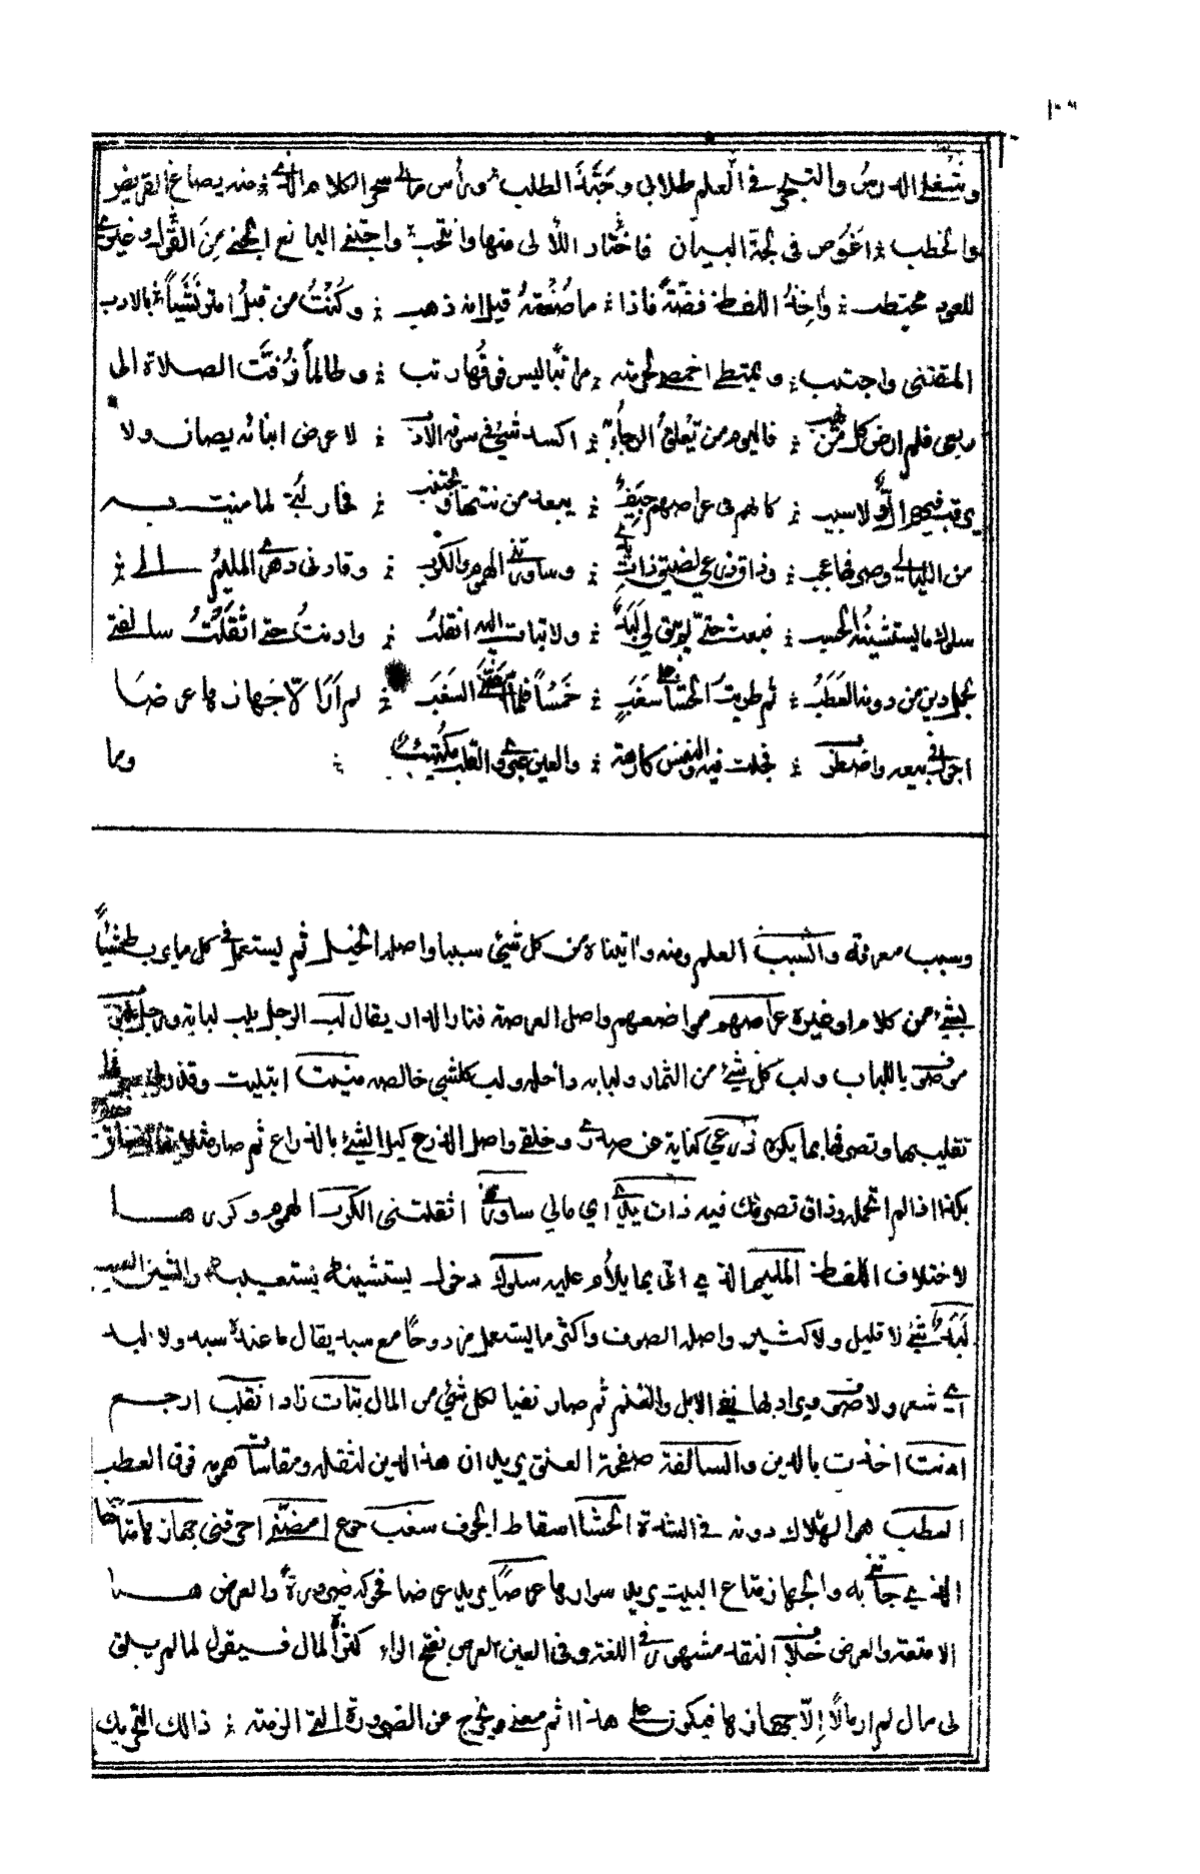 وشغلي الدرس والتبحر في العلم طلابي وحبذا الطلب ورأس مالي سحر الكلام الذي منه يصاغ القريض
والخطب اغوص في لجة البيان فاختار اللآلي منها وانتخب واجتني اليانع الجني من القول وغيري
للعود محتطب واخذ اللفظ فضة فاذا ما صغته قيل انه ذهب وكنت من قبل امتري نشبا بالادب
المقتنى واجتلب ويمتطي اخمصي لحرمته مراتبا ليس فوقها رتب وطالما زفت الصلات الى
ربعي فلم ارض كل من يهب فاليوم من يعلق الرجاء به اكسد شيء في سوقه الادب لا عرض ابنائه يصان ولا
يرقب فيهم ال ولا سبب كانهم في عراصهم جيف يبعد من نتنها ويجتنب فحار لبي لما منيت به
من الليالي وصرفها عجب وضاق ذرعي لضيق ذات يدي وساورتني الهموم والكرب وقادني دهري المليم الى
سلوك ما يستشينه الحسب فبعت حتى لم يبق لي لبد ولا بتات اليه انقلب وادنت حتى اثقلت سالفتي
بحمل دين من دونه العطب ثم طويت الحشا على سغب خمسا فلما امضني السغب لم ار الا جهازها عرضا
اجول في بيعه واضطرب فجلت فيه والنفس كارهة والعين عبرى والقلب مكتئب
وما
وسبب معرفة والسبب العلم ومنه واتيناه من كل شيء سببا واصله الحبل ثم يستعمل في كل ما يربط شيئا
بشيء من كلام او غيره عراصهم مواضعهم واصل العرصة فناء الدار يقال لب الرجل يلب لبابة ورجل
موصوف باللباب ولب كل شيء من الثمار ولبابه داخله ولب كل شيء خالصه منيت ابتليت وقذ
تقليبها وتصرفها بما يكره ذرعي كناية عن صدري وخلقي واصل الذرع كيل الشيء بالذراع ثم صار مثلا
بكذا اذا لم تحمله وضاق تصرفك فيه ذات يدي اي مالي ساورتني اثقلتني الكرب الهموم وكررها
لاختلاف اللفظ المليم الذي اتى بما يلام عليه سلوك دخول يستشينه يستعيبه والشين العيب
لبد شيء لا قليل ولا كثير واصله الصوف واكثر ما يستعمل مزدوجا مع سبد يقال ما عنده سبد ولا لبد
اي شعر ولا صوف ويراد بها نفي الابل والغنم ثم صار نفيا لكل شيء من المال بتات زاد انقلب ارجع
ادنت اخذت بالدين والسالفة صفحة العنق يريد ان هذا الدين لثقله ومقاساة همومه فوق العطب
العطب هو الهلاك دونه في الشدة الحشا اسقاط الجوف سغب جوع امضني احرقني جهازها متاعها
الذي جاءتني به والجهاز متاع البيت يريد سوارها عرضا يريد عرضا فحركه ضرورة والعرض هذا
الامتعة والعرض خلاف النقد مشهور في اللغة وفي العين العرض بفتح الراء كثرة المال فيقول لما لم يبق
لي مال لم ار مالا الا جهازها فيكون على هذا اتم معنى ويخرج عن الضرورة التي الزمته ذلك التحريك